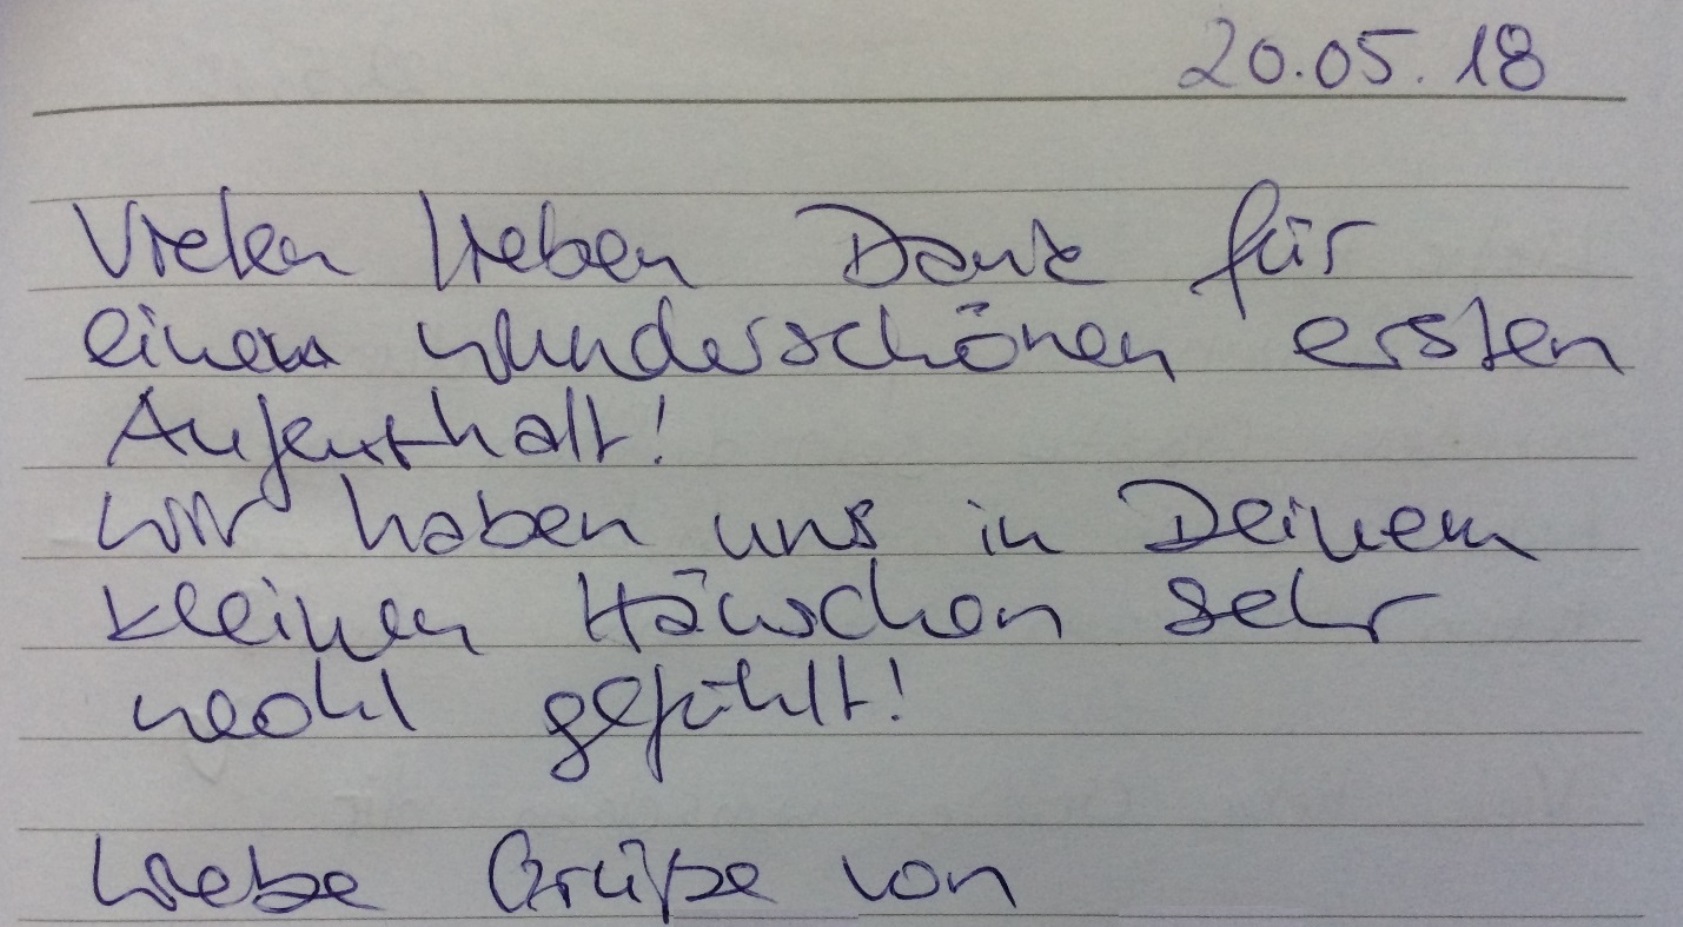 20.05.18
Vielen lieben Dank für
einen wunderschönen ersten
Aufenthalt!
Wir haben uns in Deinem
kleinen Häuschen sehr
wohl gefühlt!
Liebe Grüße von